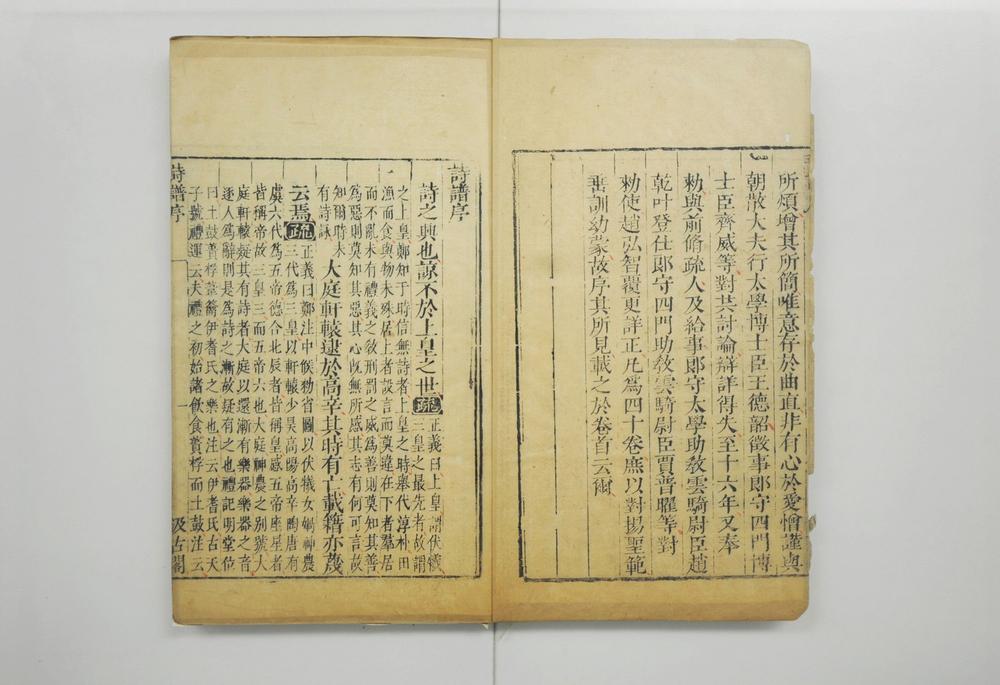 所煩增其所簡唯意存於曲直非有心於愛憎謹與
朝散大夫行太學博士臣王德韶徵事郎守四門博
士臣齊威等對共討論辯詳得失至十六年又奉
勑與前脩疏人及給事郎守太學助敎雲騎尉臣趙
乾叶登仕郎守四門助敎雲騎尉臣賈普曜等對
勑使趙弘智覆更詳正凡爲四十卷庶以對揚聖範
垂訓幼蒙故序其所見載之於卷首云爾
詩譜序
詩之興也諒不於上皇之世疏正義曰上皇謂伏犧
三皇之最先者故謂
之上皇鄭知于時信無詩者上皇之時舉代淳朴田
漁而食與物未殊居上者設言而莫違在下者羣居
而不亂未有禮義之敎刑罰之威爲善則莫知其善
爲惡則莫知其惡其心旣無所感其志有何可言故
知爾時未
有詩詠
大庭軒轅逮於高辛其時有亡載籍亦蔑
云焉疏正義曰鄭注中候勑省圖以伏犧女媧神農
三代爲三皇以軒轅少昊高陽高辛陶唐有
虞六代爲五帝德合北辰者皆稱皇感五帝座星者
皆稱帝故三皇三而五帝六也大庭神農之別號大
庭軒轅疑其有詩者大庭以還漸有樂器樂器之音
逐人爲辭則是爲詩之漸故疑有之也禮記明堂位
曰土鼓蕢桴葦籥伊耆氏之樂也注云伊耆氏古天
子號禮運云夫禮之初始諸飮食蕢桴而土鼓注云
詩譜序
一
汲古閣